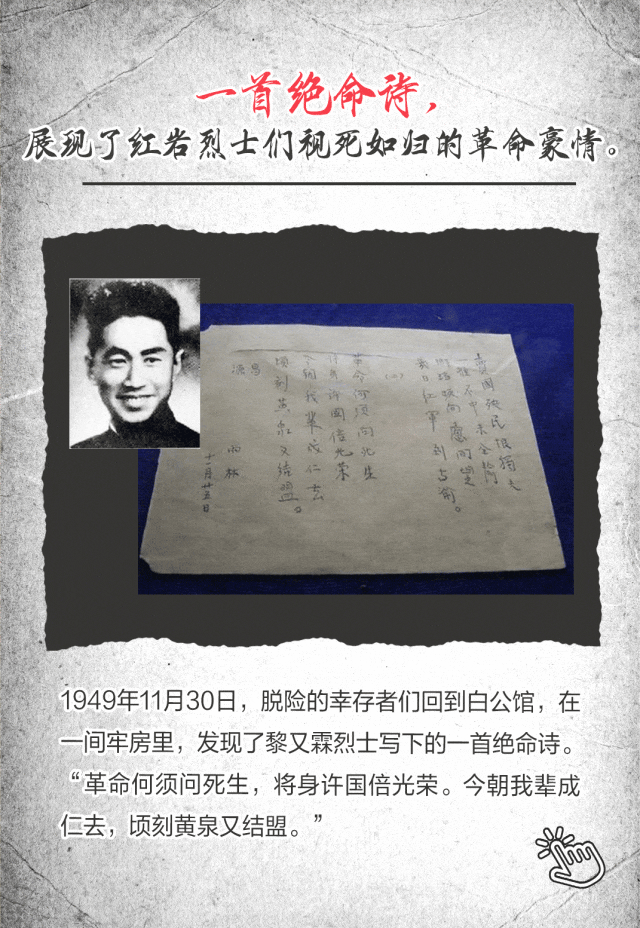 一首绝命诗，
展现了红岩烈士们视死如归的革命豪情。
賣國殃民恨獨夫
一椎不中未全輸
向窗間望
紅軍到古渝。
(二)
革命何須问死生
身許國倍光荣
我輩成仁去
頃刻黄泉又结盟。
雨林
十一月廿五日
1949年11月30日，脱险的幸存者们回到白公馆，在
一间牢房里，发现了黎又霖烈士写下的一首绝命诗。
“革命何须问死生，将身许国倍光荣。今朝我辈成
仁去，顷刻黄泉又结盟。”